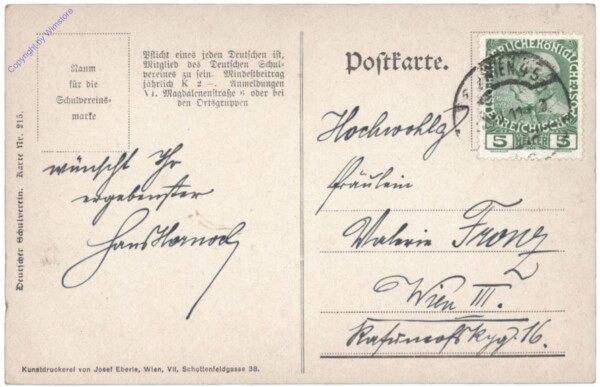 Copyright by Wimstore
Raum
für die
Schulvereins-
marke
Pflicht eines jeden Deutschen ist,
Mitglied des Deutschen Schul-
vereines zu sein. Mindestbeitrag
jährlich K 2 —. Anmeldungen
VI. Magdalenenstraße 6 oder bei
den Ortsgruppen
Postkarte.
WIEN
5 HELLER 5
Deutscher Schulverein. Karte Nr. 215.
wünscht Ihr
ergebenster
Hans
Hochwohlg
Fräulein
Valerie Fronz
Wien III.
16.
Kunstdruckerei von Josef Eberle, Wien, VII. Schottenfeldgasse 38.